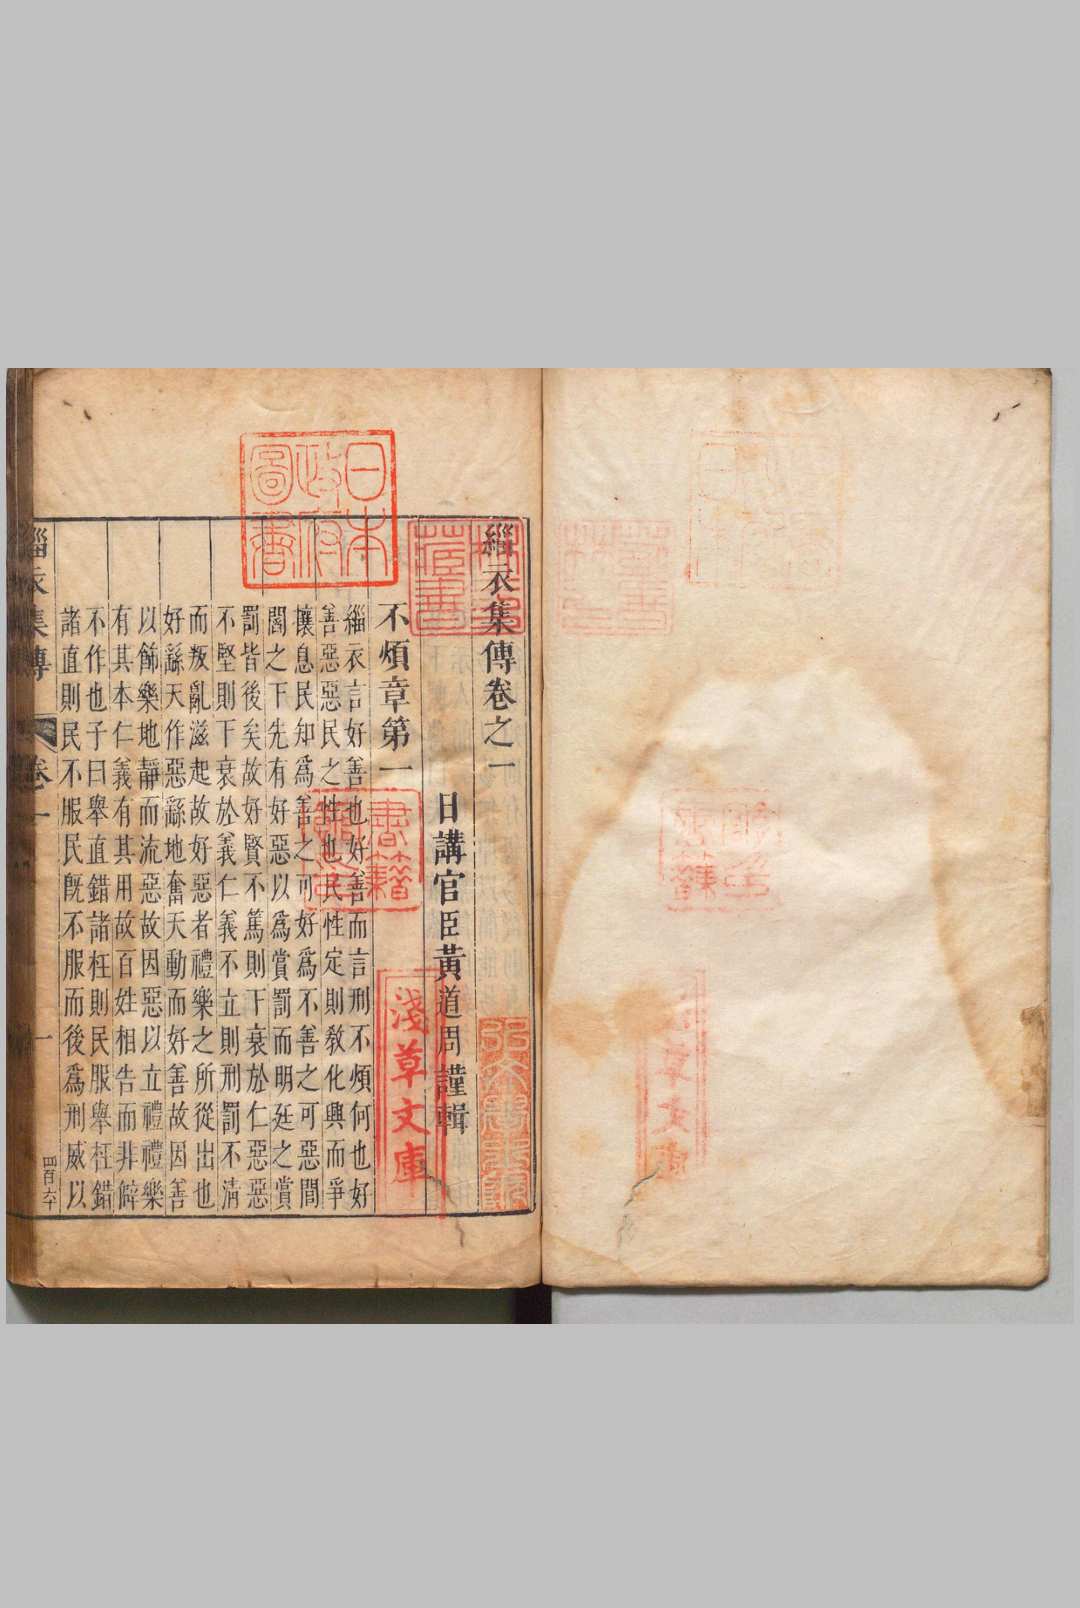 緇衣集傳卷之一
日講官臣黃道周謹輯
不煩章第一
緇衣言好善也好善而言刑不煩何也好
善惡惡民之性也民性定則敎化興而爭
攘息民知爲善之可好爲不善之可惡閭
閻之下先有好惡以爲賞罰而明廷之賞
罰皆後矣故好賢不篤則下衰於仁惡惡
不堅則下衰於義仁義不立則刑罰不淸
而叛亂滋起故好惡者禮樂之所從出也
好繇天作惡繇地奮天動而好善故因善
以飾樂地靜而流惡故因惡以立禮禮樂
有其本仁義有其用故百姓相告而非僻
不作也子曰舉直錯諸枉則民服舉枉錯
諸直則民不服民旣不服而後爲刑威以
緇衣集傳
卷一
一
四百六十
日本政府圖書
林氏藏書
淺草文庫